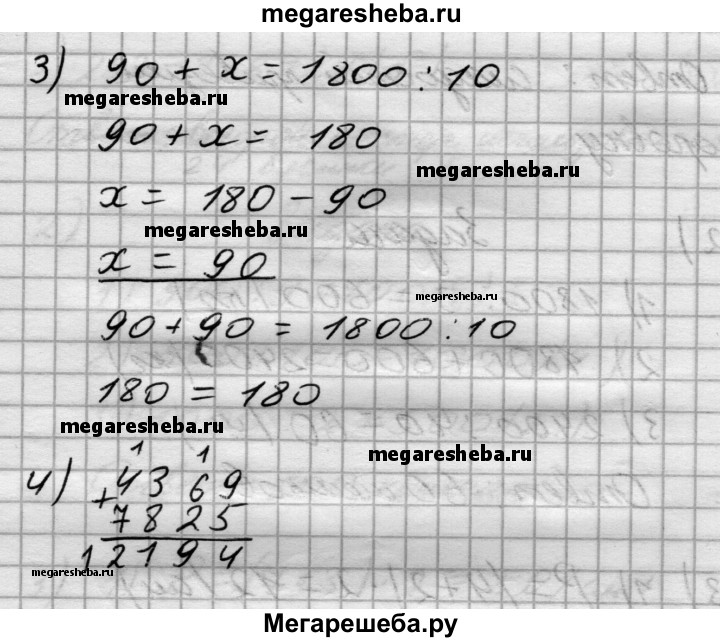 megaresheba.ru
3) 90 + x = 1800 : 10
megaresheba.ru
90 + x = 180
megaresheba.ru
x = 180 - 90
megaresheba.ru
x = 90
megaresheba.ru
90 + 90 = 1800 : 10
180 = 180
megaresheba.ru
megaresheba.ru
1 1
4) 4369
+
7825
12194
megaresheba.ru
Мегарешеба.ру